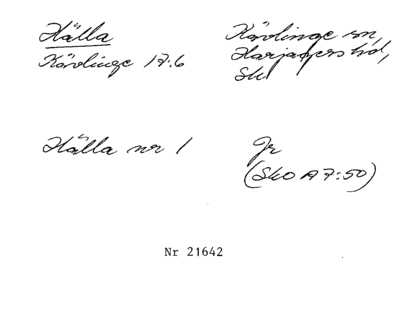 Hälla
Kävlinge 17:6
Kävlinge sn,
Harjagers hd,
Sk
Hälla nr 1
Jr
(SkO A7:50)
Nr 21642